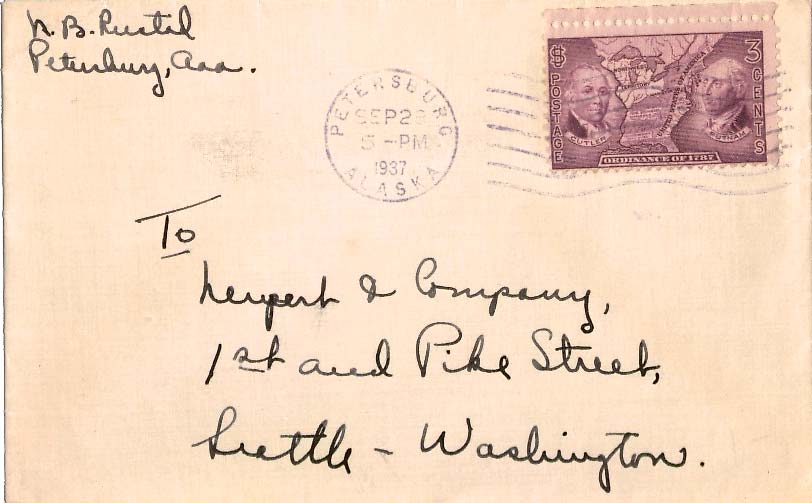 N. B. Rustad
Petersburg,
PETERSBURG
SEP 2
5 -PM
1937
ALASKA
$ POSTAGE
3 CENTS
UNITED STATES OF AMERICA
CUTLER
PUTNAM
ORDINANCE OF 1787
To
& Company,
1st and Pike Street,
Seattle - Washington.